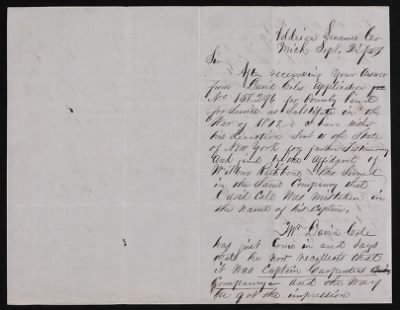 Addison Lenawee Co
Mich Sept. 21/58
Sir
After receiving your answer
from David Cole Application
No 158.296 for Bounty Land
for service as Substitute in the
War of 1812 - I have under
his direction sent to the State
of New York for further Testimony
and find by the Affidavit of
Wilbur Rathbone who served
in the same Company that
David Cole was mistaken in
the name of his Captain.
Mr David Cole
has just Come in and says
that he now recollects that
it was Captain Carpenters
Company - and the way
he got the impression